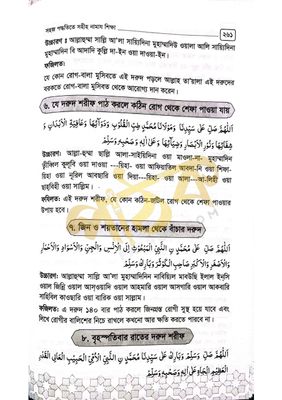 সহজ পদ্ধতিতে সহীহ নামায শিক্ষা
২৬১
উচ্চারণ : আল্লাহুম্মা সাল্লি আ'লা সায়্যিদিনা মুহাম্মাদিউ ওয়ালা আলি সায়্যিদিনা
মুহাম্মাদিন বি আদাদি কুল্লি দা-ইন ওয়া দাওয়া-ইন।
ফজিলত:
যে কোন রোগ-বালা মুসিবতে এই দরূদ পড়লে আল্লাহ তা'য়ালা এই দরূদের
বরকতে রোগ-বালা মুসিবত থেকে আরোগ্য দান করেন।
৬. যে দরূদ শরীফ পাঠ করলে কঠিন রোগ থেকে শেফা পাওয়া যায়
اَللّٰهُمَّ صَلِّ عَلٰى سَيِّدِنَا وَمَوْلَانَا مُحَمَّدٍ طِبِّ الْقُلُوْبِ وَدَوَآئِهَا وَعَافِيَةِ الْاَبْدَانِ وَ
شِفَائِهَا وَنُوْرِ الْاَبْصَارِ وَضِيَآئِهَا وَعَلٰى اٰلِهٖ وَصَحْبِهٖ وَسَلِّمْ
উচ্চারণ: আল্লা-হুম্মা ছাল্লি আলা-সাইয়িদিনা ওয়া মাওলা-না- মুহাম্মাদিন
ত্বীব্বিল কুলূবি ওয়া দাওয়া ---হিহা- ওয়া আফিয়াতিল আবদা-নি ওয়া শিফা-
য়িহা ওয়া নূরিল আবছারি ওয়া দ্বিয়া---য়িহা- ওয়া আলা---আ-লিহী ওয়া
ছাহবিহী ওয়া সাল্লিম।
ফজিলত: এই দরুদ শরীফ, যে কোন কঠিন-জটিল রোগ থেকে শেফা পাওয়ার
উপায় হবে।
৭. জিন ও শয়তানের হামলা থেকে বাঁচার দরূদ
اَللّٰهُمَّ صَلِّ عَلٰى مُحَمَّدِ نِ النَّبِىِّ الْمَبْعُوْثِ اِلَى الْاِنْسِ وَالْجِنِّ وَالْاَسْوَدِ وَالْاَحْمَرِ
উচ্চারণ: আল্লাহুম্মা সাল্লি আ'লা মুহাম্মাদিনিন নাবিয়্যিল মাবউছি ইলাল ইন্‌সি
ওয়াল জিন্নি ওয়াল আস্‌ওয়াদি ওয়াল আহমারি ওয়াল আসগারি ওয়াল আকবারি
সাহিবিল কাওছারি ওয়া বারিক ওয়া সাল্লাম।
ফজিলত: এ দরূদ ১৪০ বার পাঠ করলে জিনগ্রস্ত রোগী সুস্থ হয়ে যাবে এবং
লিখে রোগীর বালিশের নিচে রাখলে কখনো আর ক্ষতি করতে পারবে না।
৮. বৃহস্পতিবার রাতের দরূদ শরীফ
اَللّٰهُمَّ صَلِّ وَسَلِّمْ وَبَارِكْ عَلٰى سَيِّدِنَا مُحَمَّدِ نِ النَّبِىِّ الْاُمِّىِّ الْحَبِيْبِ الْعَالِى الْقَدْرِ
الْعَظِيْمِ الْجَاهِ وَعَلٰى اٰلِهٖ وَصَحْبِهٖ وَسَلِّمْ